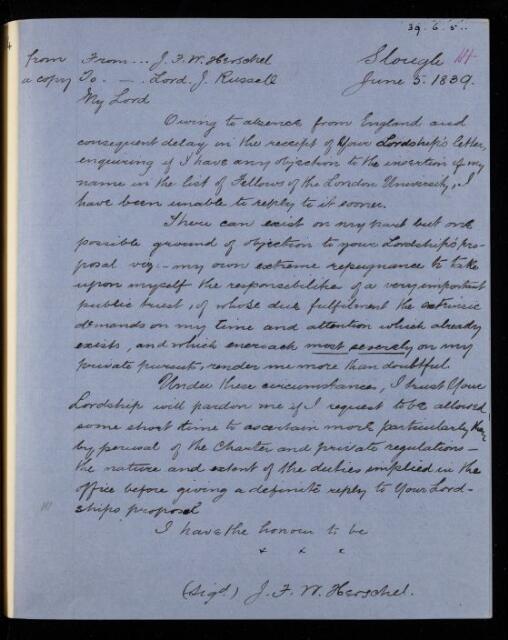 39. 6. 5..
from From ... J. F. W. Herschel Slough 114
a copy To. - .. Lord. J. Russell June 5. 1839.
My Lord
Owing to absence from England and
consequent delay in the receipt of Your Lordship's letter,
enquiring if I have any objection to the insertion of my
name in the list of Fellows of the London University, I
have been unable to reply to it sooner.
There can exist on my part but one
possible ground of objection to your Lordship's pro-
posal viz:- my own extreme repugnance to take
upon myself the responsibilities of a very important
public trust, of whose due fulfilment the extrinsic
demands on my time and attention which already
exists, and which encroach most severely on my
private pursuits, render me more than doubtful.
Under these circumstances, I trust Your
Lordship will pardon me if I request to be allowed
some short time to ascertain more particularly than
by perusal of the Charter and private regulations -
the nature and extent of the duties implied in the
office before giving a definite reply to Your Lord-
ships proposal
I have the honour to be
x x x
(Sigd.) J. F. W. Herschel.